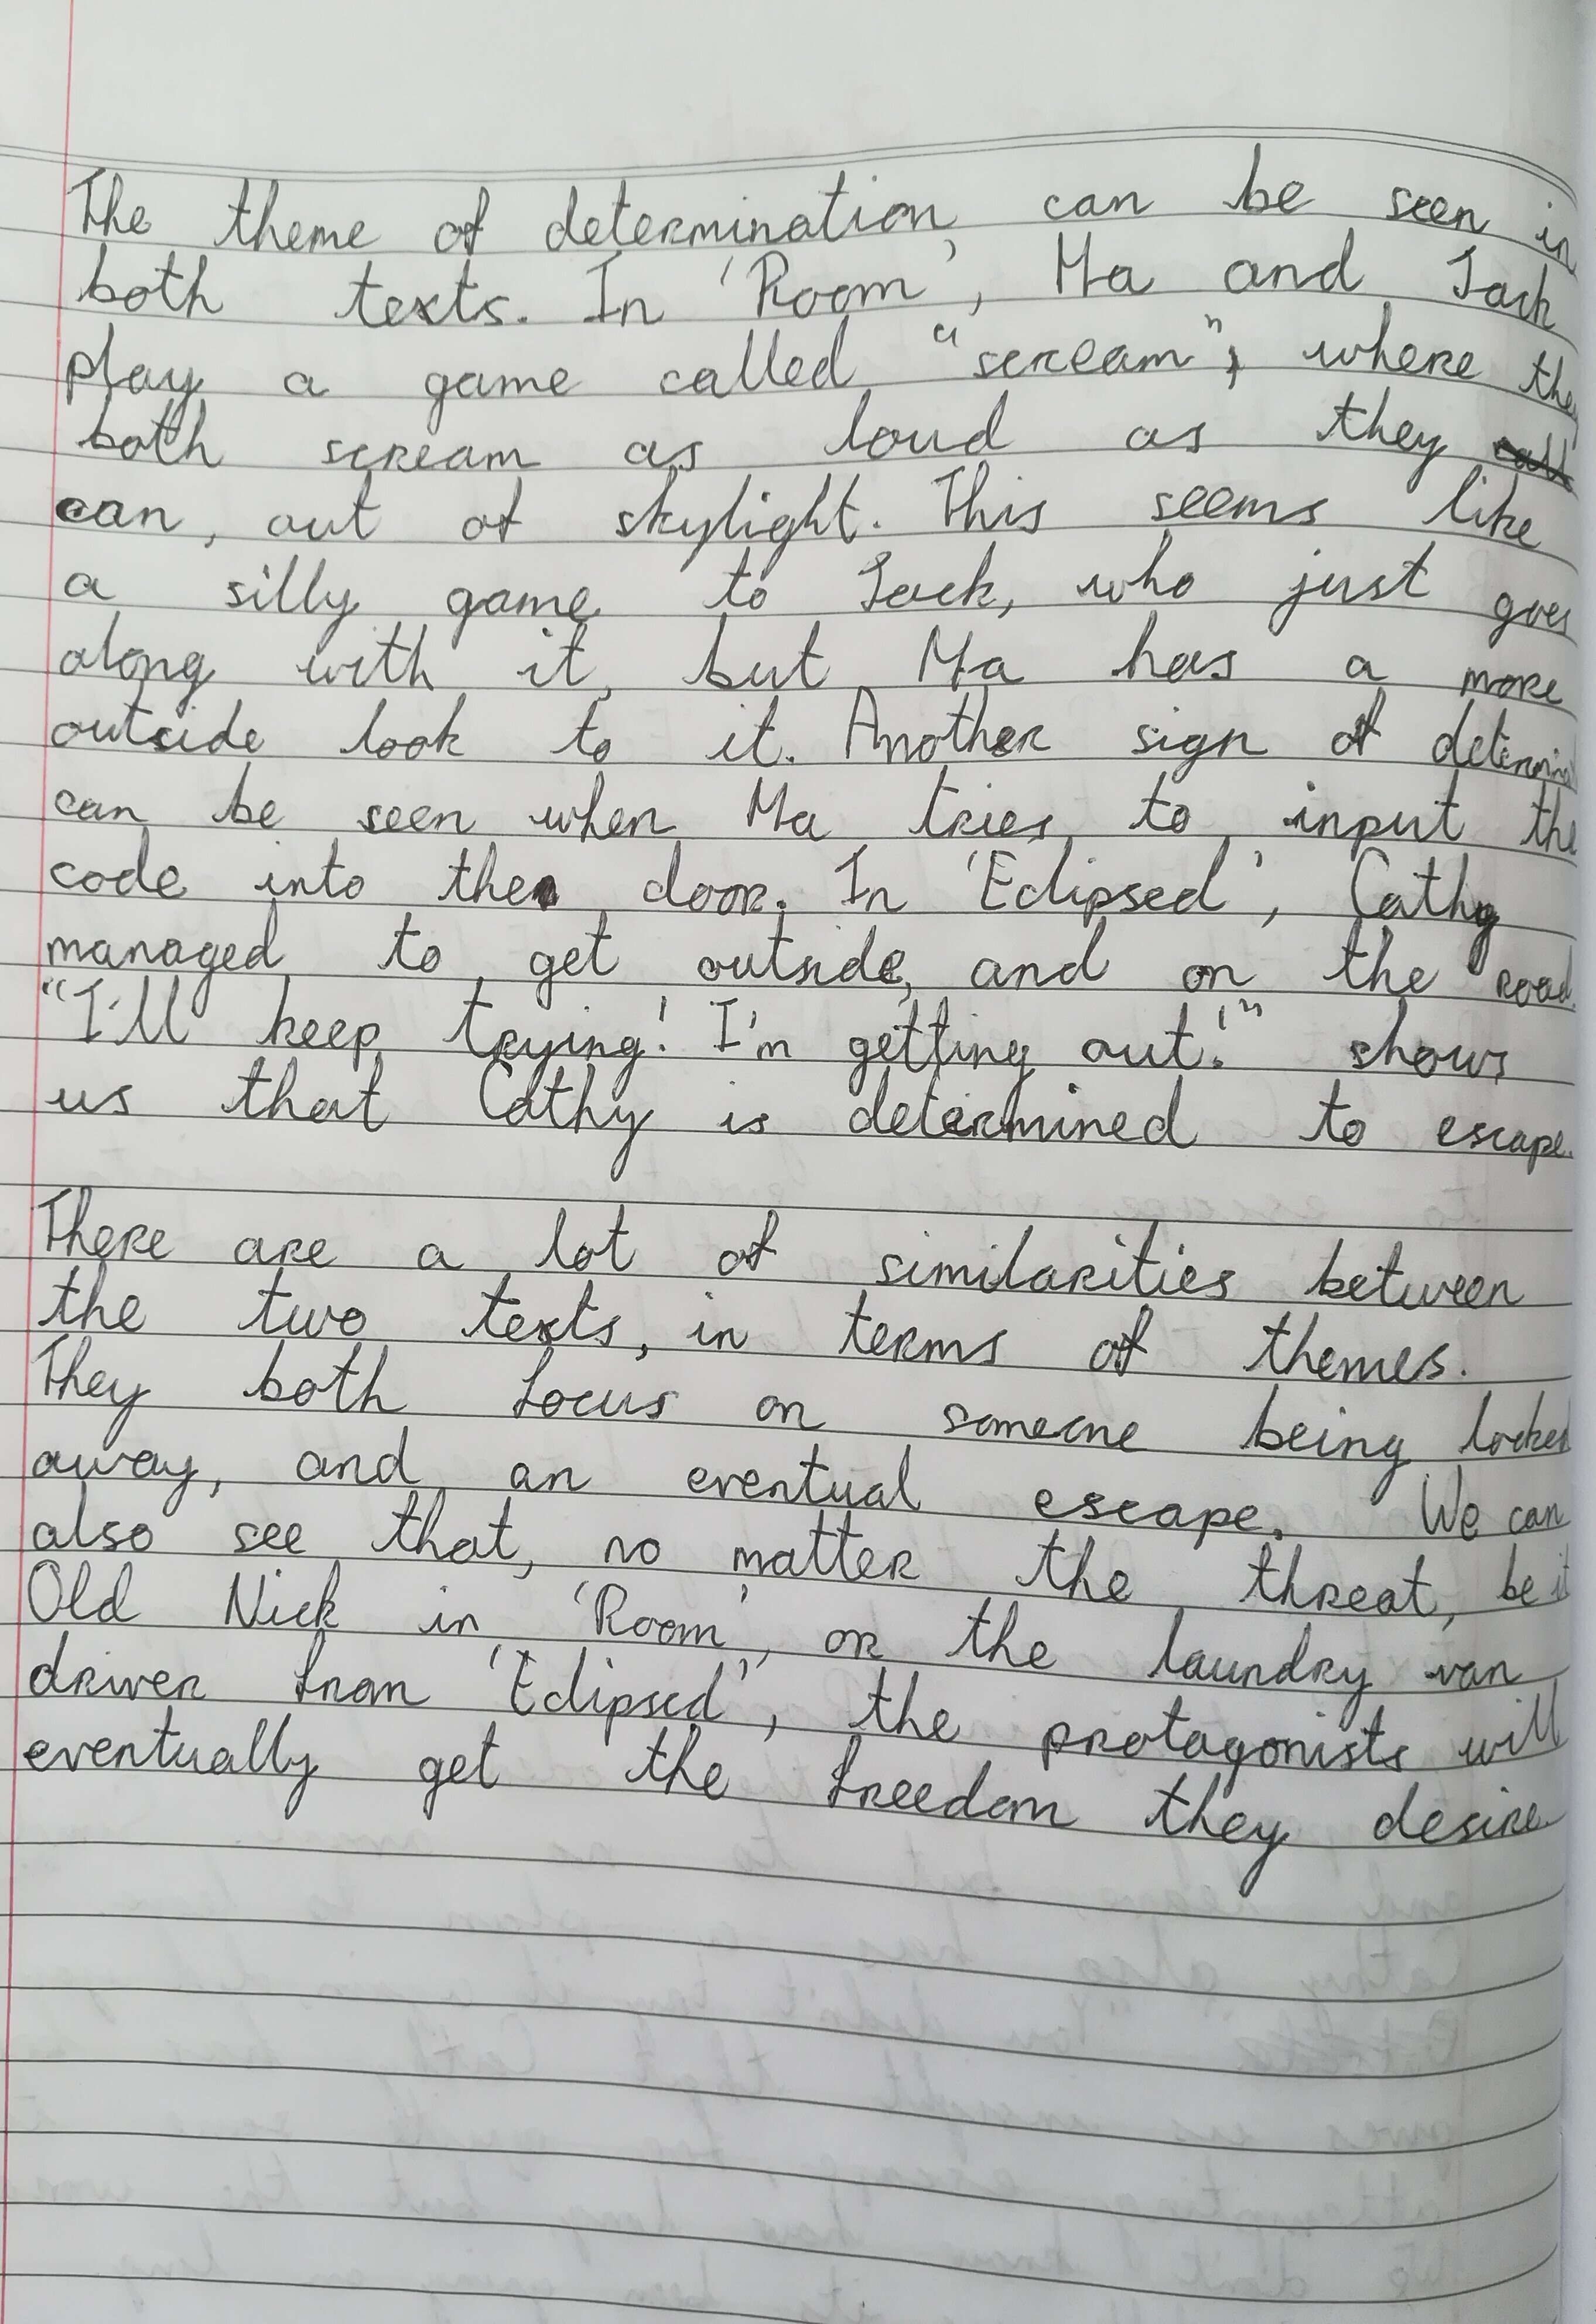 The theme of determination, can be seen in
both texts. In 'Room', Ma and Jack
play a game called "scream", where they
both scream as loud as they
can, out of skylight. This seems like
a silly game to Jack, who just goes
along with it, but Ma has a more
outside look to it. Another sign of
can be seen when Ma tries to input the
code into the door. In 'Eclipsed', Cathy
managed to get outside, and on the road.
"I'll keep trying! I'm getting out!" shows
us that Cathy is determined to escape.
There are a lot of similarities between
the two texts, in terms of themes.
They both focus on someone being locked
away, and an eventual escape. We can
also see that, no matter the threat, be it
Old Nick in 'Room', or the laundry van
driver from 'Eclipsed', the protagonists will
eventually get the freedom they desire.